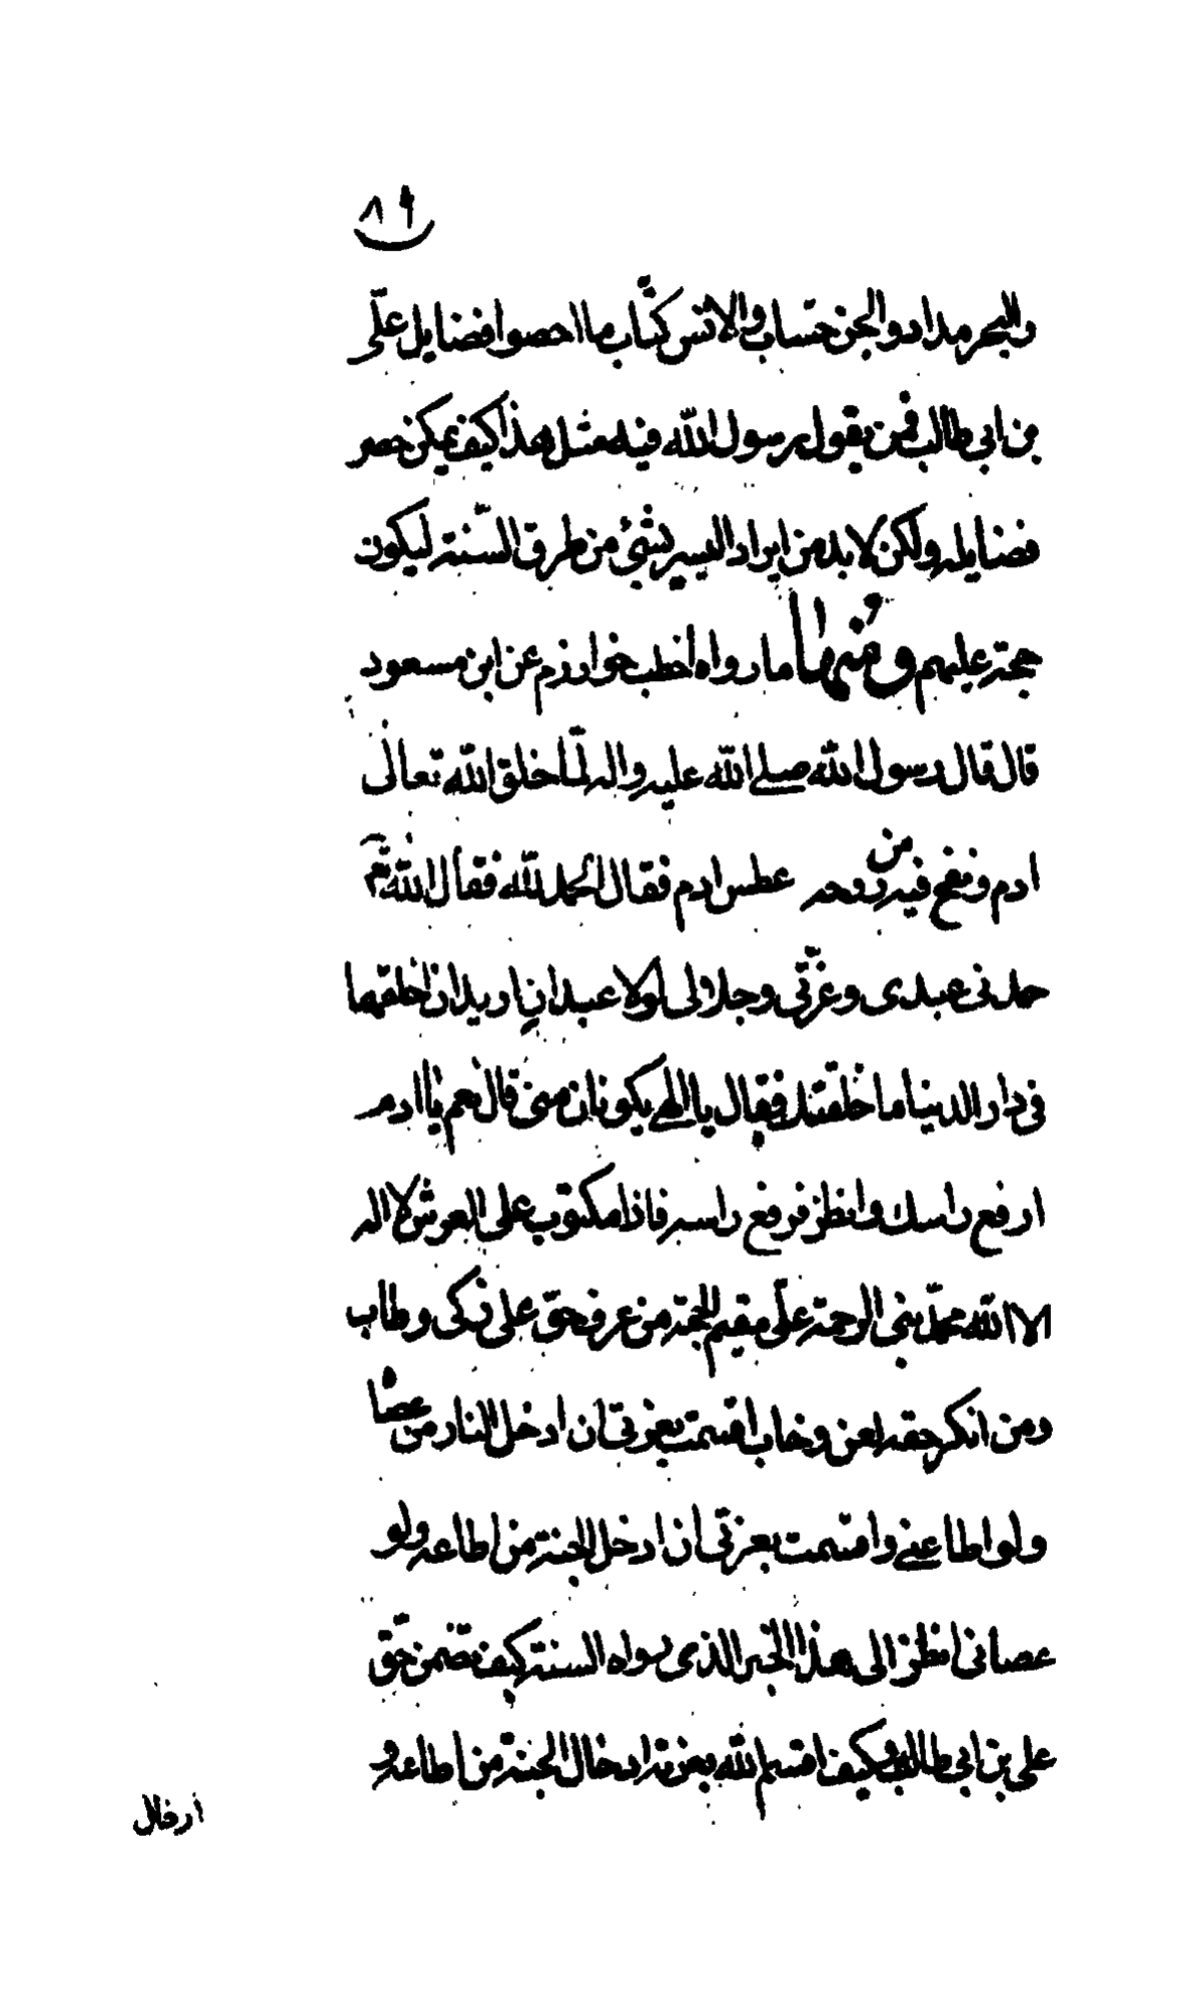 ٨٩
والبحر مداد والجن حساب والانس كتاب ما احصوا فضايل على
بن ابى طالب فمن يقول رسول الله فيه مثل هذا كيف يمكن حصر
فضايله ولكن لا بد من ايراد اليسير بشئ من طرق السنة ليكون
حجة عليهم ومنها ما رواه اخطب خوارزم عن ابن مسعود
قال قال رسول الله صلى الله عليه واله لما خلق الله تعالى
ادم ونفخ فيه من روحه عطس ادم فقال الحمد لله فقال الله تع
حمدنى عبدى وعزتى وجلالى لولا عبدان اريد ان اخلقهما
فى دار الدنيا ما خلقتك فقال يا الهى يكونان منى قال نعم يا ادم
ارفع راسك وانظر فرفع راسه فاذا مكتوب على العرش لا اله
الا الله محمد نبى الرحمة على مقيم الحجة من عرف حق على زكى وطاب
ومن انكر حقه لعن وخاب اقسمت بعزتى ان ادخل النار من عصاه
ولو اطاعنى واقسمت بعزتى ان ادخل الجنة من اطاعه ولو
عصانى انظر الى هذا الخبر الذى رواه السنة كيف تضمن حق
على بن ابى طالب وكيف اقسم الله بعزته ادخال الجنة من اطاعه و
ادخال